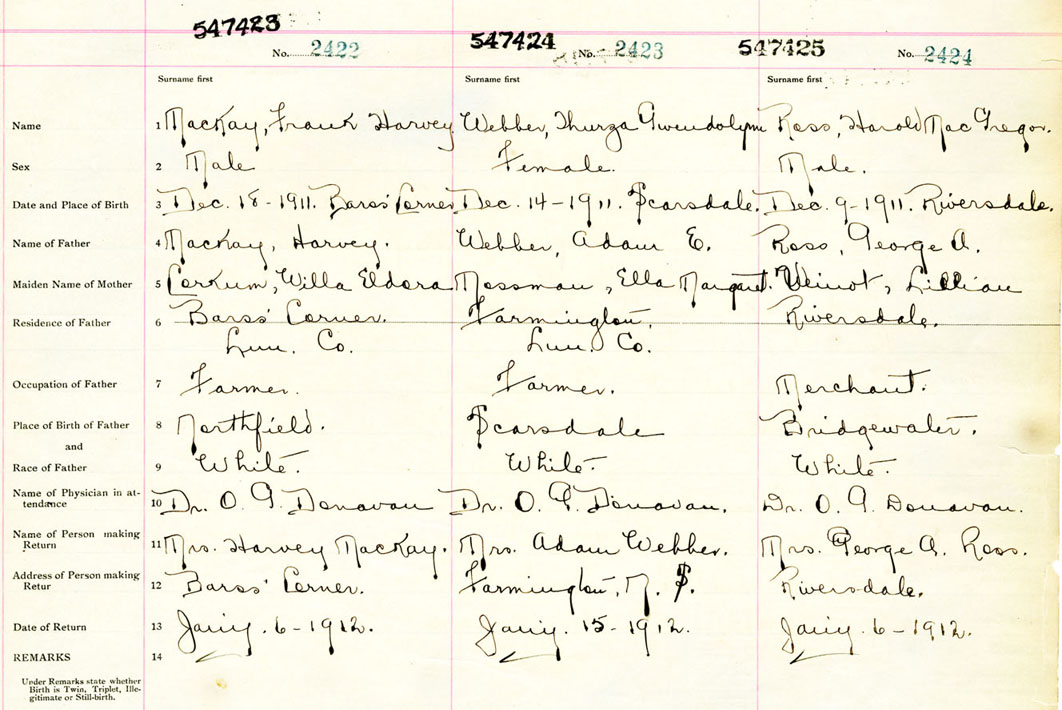 547423 547424 547425
No. 2422 No. 2423 No. 2424
Surname first Surname first Surname first
Name 1 MacKay, Frank Harvey Webber, Thurza Gwendolynn Ross, Harold MacGregor.
Sex 2 Male Female. Male.
Date and Place of Birth 3 Dec. 18-1911. Barss' Corner Dec. 14-1911. Scarsdale. Dec. 9-1911. Riversdale.
Name of Father 4 MacKay, Harvey. Webber, Adam E. Ross, George A.
Maiden Name of Mother 5 Corkum, Willa Eldora Mossman, Ella Margaret. Veinot, Lillian
Residence of Father 6 Barss' Corner. Farmington. Riversdale.
Lun. Co. Lun. Co.
Occupation of Father 7 Farmer. Farmer. Merchant.
Place of Birth of Father 8 Northfield. Scarsdale Bridgewater.
and
Race of Father 9 White. White. White.
Name of Physician in at-
tendance 10 Dr. O. G. Donovan Dr. O. G. Donavan. Dr. O. G. Donavan.
Name of Person making
Return 11 Mrs. Harvey MacKay. Mrs. Adam Webber. Mrs. George A. Ross.
Address of Person making
Retur 12 Barss' Corner. Farmington, N. S. Riversdale.
Date of Return 13 Jany. 6-1912. Jany. 15-1912. Jany. 6-1912.
REMARKS 14
Under Remarks state whether
Birth is Twin, Triplet, Ille-
gitimate or Still-birth.